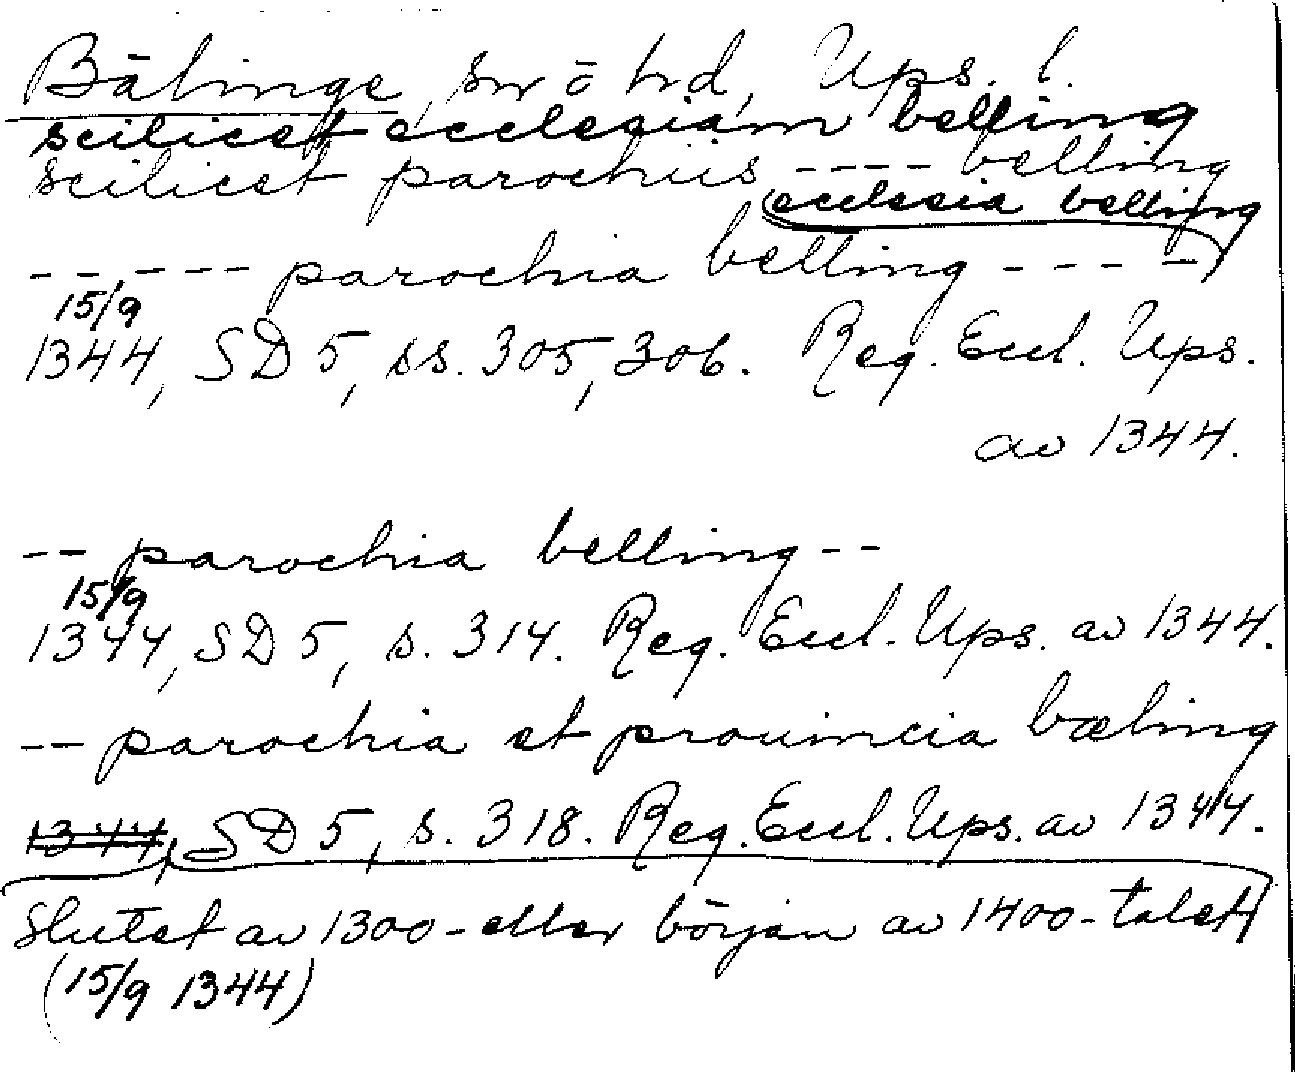 Bälinge, sn o hd, Ups. l.
scilicet ecclesiam belling
scilicet parochiis ---- belling
ecclesia belling
------ parochia belling ----
15/9
1344, SD 5, ss. 305, 306. Reg. Eccl. Ups.
av 1344.
-- parochia belling --
15/9
1344, SD 5, s. 314. Reg. Eccl. Ups. av 1344.
-- parochia et prouincia bæling
1344, SD 5, s. 318. Reg. Eccl. Ups. av 1344.
Slutet av 1300- eller början av 1400-talet
(15/9 1344)